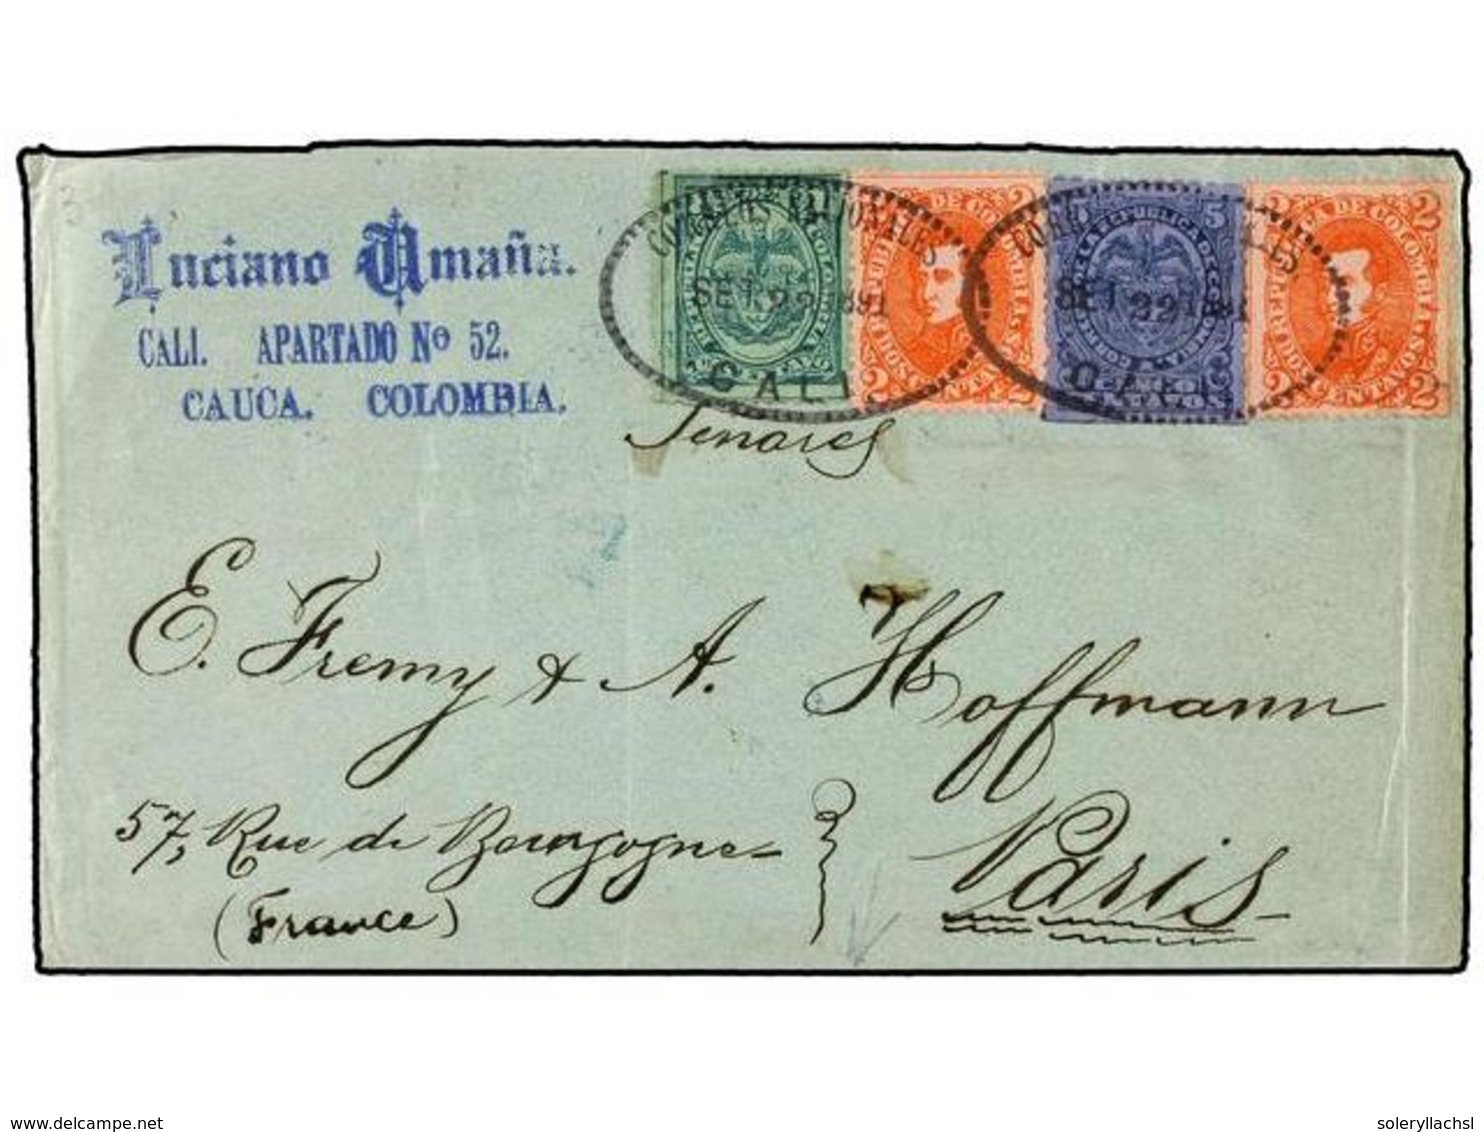 Luciano Umaña.
CALI. APARTADO Nº 52.
CAUCA. COLOMBIA.
CORREOS NACIONALES
SET. 22 1891
CALI
REPUBLICA DE COLOMBIA
DOS CENTAVOS
2 2
REPUBLICA DE COLOMBIA
5
SET. 22 1891
CALI
E. Fremy & A. Hoffmann
57, Rue de Bourgogne
Paris
(France)
www.delcampe.net
soleryllachsl